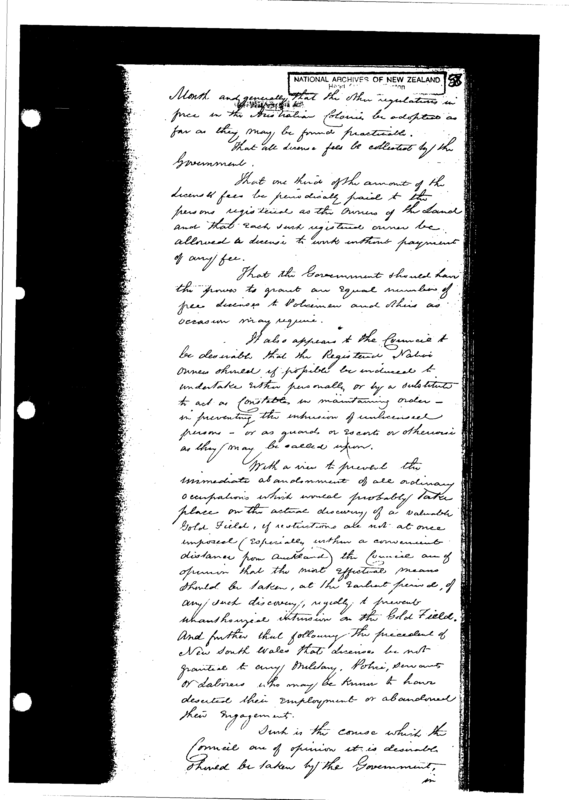 NATIONAL ARCHIVES OF NEW ZEALAND
Month and generally that the other regulations in
force in the Australian Colonies be adopted as
far as they may be found practicable.
That all license fees be collected by the
Government.
That one third of the amount of the
license fees be periodically paid to the
persons registered as the owners of the Land
and that each such registered owner be
allowed a license to work without payment
of any fee.
That the Government should have
the power to grant an equal number of
free licenses to Policemen and others as
occasion may require.
It also appears to the Council to
be desirable that the Registered Native
owners should if possible be induced to
undertake either personally or by a substitute
to act as Constables in maintaining order —
in preventing the intrusion of unlicensed
persons — or as guards or Escorts or otherwise
as they may be called upon.
With a view to prevent the
immediate abandonment of all ordinary
occupations which would probably take
place on the actual discovery of a valuable
Gold Field, if restrictions are not at once
imposed (Especially within a convenient
distance from Auckland) the Council are of
opinion that the most Effectual means
should be taken, at the Earliest period, of
any such discovery, rigidly to prevent
unauthorized intrusion on the Gold Field.
And further that following the precedent of
New South Wales that licenses be not
granted to any Military, Police, Servants
or Laborers who may be known to have
deserted their Employment or abandoned
their Engagement.
Such is the course which the
Council are of opinion it is desirable
should be taken by the Government,
in